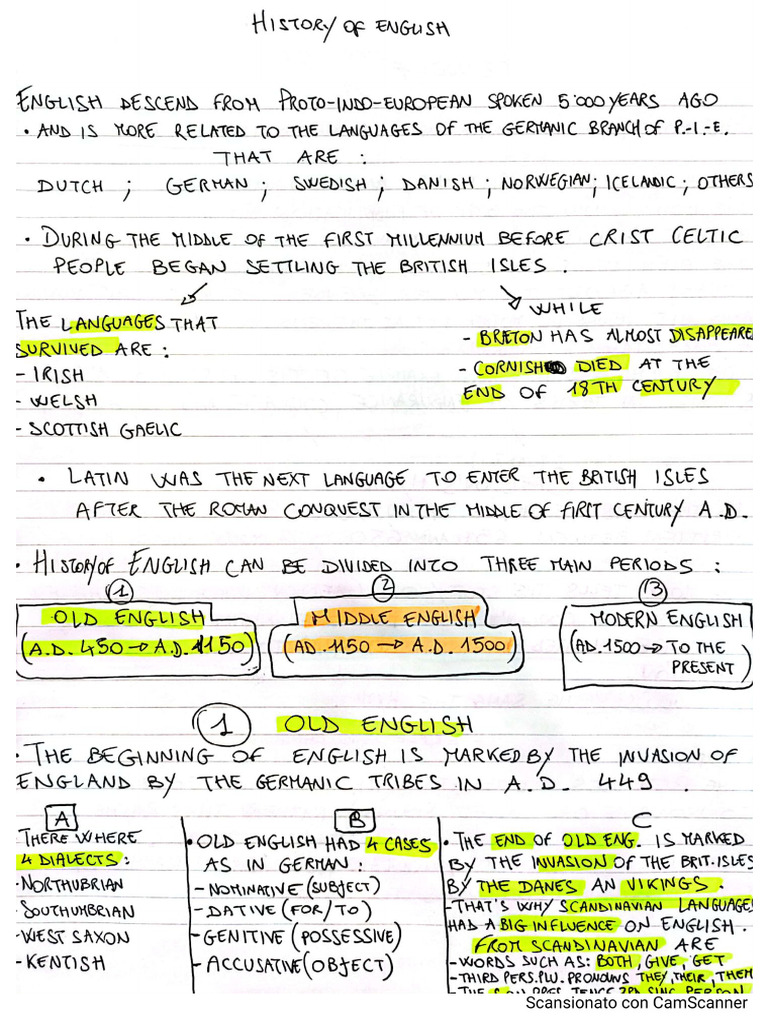 HISTORY OF ENGLISH
ENGLISH DESCEND FROM PROTO-INDO-EUROPEAN SPOKEN 5'000 YEARS AGO
• AND IS MORE RELATED TO THE LANGUAGES OF THE GERMANIC BRANCH OF P.-I.-E.
THAT ARE :
DUTCH ; GERMAN ; SWEDISH ; DANISH ; NORWEGIAN; ICELANDIC ; OTHERS
• DURING THE MIDDLE OF THE FIRST MILLENNIUM BEFORE CRIST CELTIC
PEOPLE BEGAN SETTLING THE BRITISH ISLES .
THE LANGUAGES THAT
SURVIVED ARE :
- IRISH
- WELSH
- SCOTTISH GAELIC
WHILE
- BRETON HAS ALMOST DISAPPEARE
- CORNISH DIED AT THE
END OF 18TH CENTURY
• LATIN WAS THE NEXT LANGUAGE TO ENTER THE BRITISH ISLES
AFTER THE ROMAN CONQUEST IN THE MIDDLE OF FIRST CENTURY A.D.
• HISTORY OF ENGLISH CAN BE DIVIDED INTO THREE MAIN PERIODS :
1
OLD ENGLISH
(A.D. 450 → A.D. 1150)
2
MIDDLE ENGLISH
(AD. 1150 → A.D. 1500)
3
MODERN ENGLISH
(AD. 1500 → TO THE
PRESENT)
1 OLD ENGLISH
• THE BEGINNING OF ENGLISH IS MARKED BY THE INVASION OF
ENGLAND BY THE GERMANIC TRIBES IN A.D. 449 .
A
THERE WHERE
4 DIALECTS :
- NORTHUBRIAN
- SOUTHUMBRIAN
- WEST SAXON
- KENTISH
B
• OLD ENGLISH HAD 4 CASES
AS IN GERMAN :
- NOMINATIVE (SUBJECT)
- DATIVE (FOR/TO)
- GENITIVE (POSSESSIVE)
- ACCUSATIVE (OBJECT)
C
• THE END OF OLD ENG. IS MARKED
BY THE INVASION OF THE BRIT. ISLES
BY THE DANES AN VIKINGS .
- THAT'S WHY SCANDINAVIAN LANGUAGES
HAD A BIG INFLUENCE ON ENGLISH .
FROM SCANDINAVIAN ARE
- WORDS SUCH AS : BOTH, GIVE, GET
- THIRD PERS. PLU. PRONOUNS THEY, THEIR, THEM
- THE PRES. TENCE 3RD SING PERSON
Scansionato con CamScanner